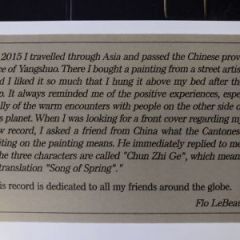 2015 I travelled through Asia and passed the Chinese prov
ce of Yangshuo. There I bought a painting from a street artis
d I liked it so much that I hung it above my bed after the
p. It always reminded me of the positive experiences, espe
lly of the warm encounters with people on the other side of
s planet. When I was looking for a front cover regarding my
w record, I asked a friend from China what the Cantones
iting on the painting means. He immediately replied to me
he three characters are called "Chun Zhi Ge", which mean
translation "Song of Spring"."
is record is dedicated to all my friends around the globe.
Flo LeBeau